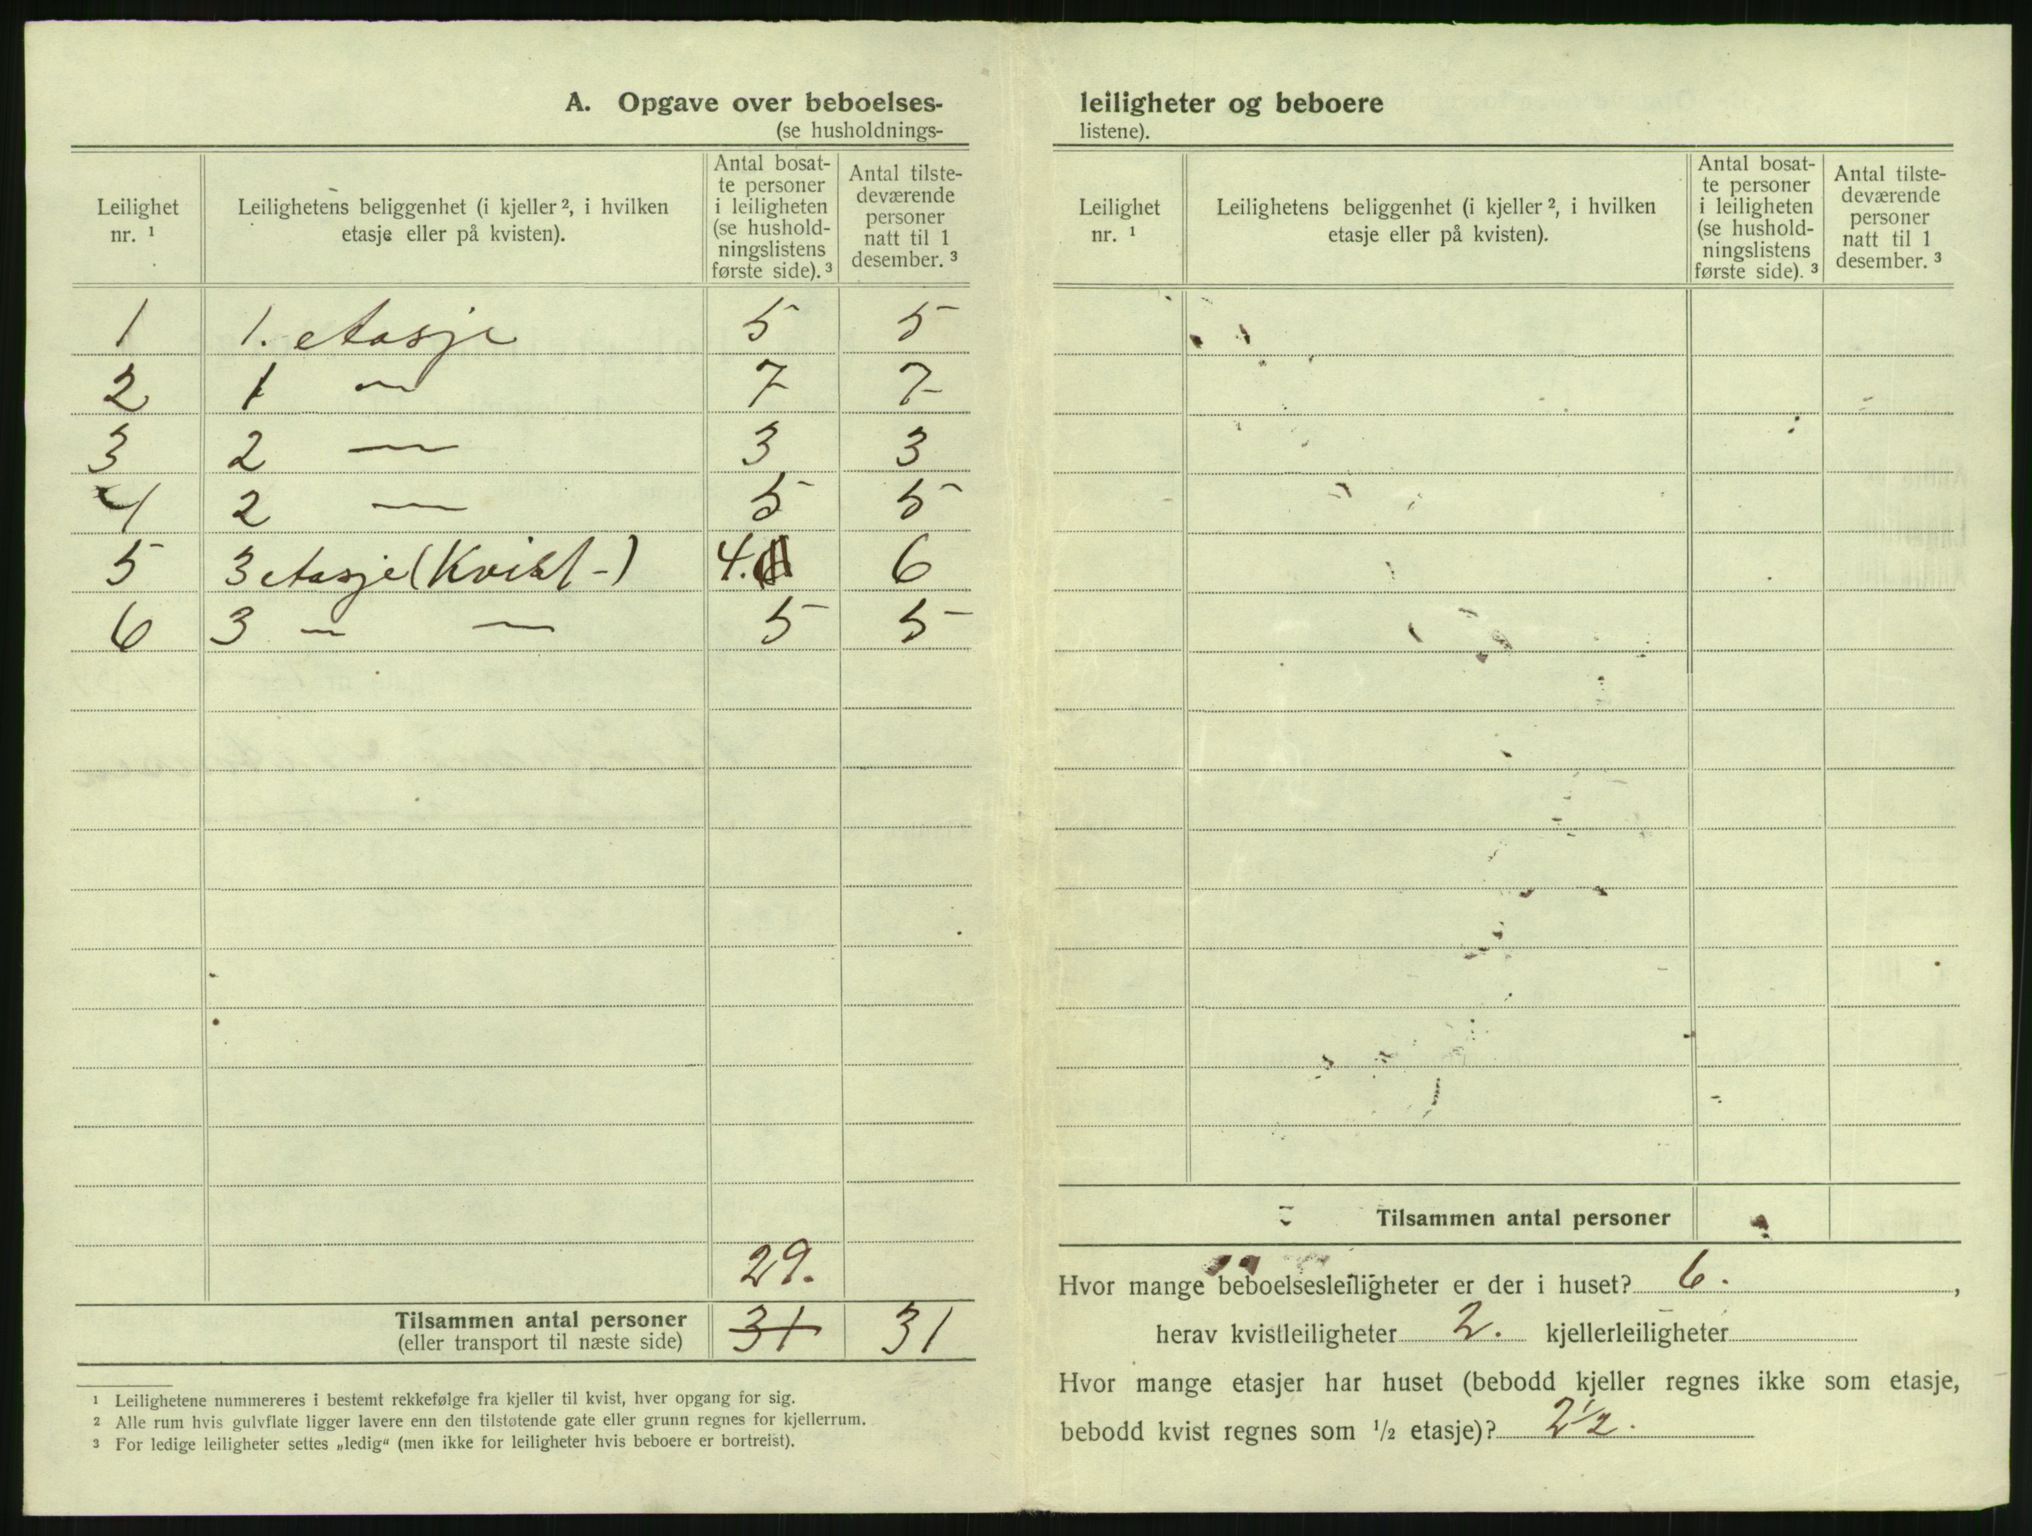 A. Opgave over beboelses-
(se husholdnings-
Leilighet nr. ¹
Leilighetens beliggenhet (i kjeller ², i hvilken etasje eller på kvisten).
Antal bosat-
te personer
i leiligheten
(se hushold-
ningslistens
første side). ³
Antal tilste-
deværende
personer
natt til 1
desember. ³
1 1. etasje 5 5
2 1 — 7 7
3 2 — 3 3
4 2 — 5 5
5 3 etasje (Kvist-) 4. 6
6 3 — — 5 5
29.
Tilsammen antal personer 31 31
(eller transport til næste side)
¹ Leilighetene nummereres i bestemt rekkefølge fra kjeller til kvist, hver opgang for sig.
² Alle rum hvis gulvflate ligger lavere enn den tilstøtende gate eller grunn regnes for kjellerrum.
³ For ledige leiligheter settes „ledig“ (men ikke for leiligheter hvis beboere er bortreist).
leiligheter og beboere
listene).
Leilighet nr. ¹
Leilighetens beliggenhet (i kjeller ², i hvilken etasje eller på kvisten).
Antal bosat-
te personer
i leiligheten
(se hushold-
ningslistens
første side). ³
Antal tilste-
deværende
personer
natt til 1
desember. ³
Tilsammen antal personer
Hvor mange beboelsesleiligheter er der i huset? 6.,
herav kvistleiligheter 2. kjellerleiligheter
Hvor mange etasjer har huset (bebodd kjeller regnes ikke som etasje,
bebodd kvist regnes som ½ etasje)? 2½.